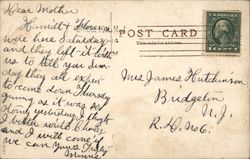 Dear Mother
Harriett
were here Saturday
and they left it with
us to tell you Sun-
day they all expect
to come down Thursday
as it was so
yesterday I
I better wild
and I will come if
we can. Yours Truly
Minnie
POST CARD
Mrs James Hutchinson
Bridgeton
N. J.
R.D. No 6.